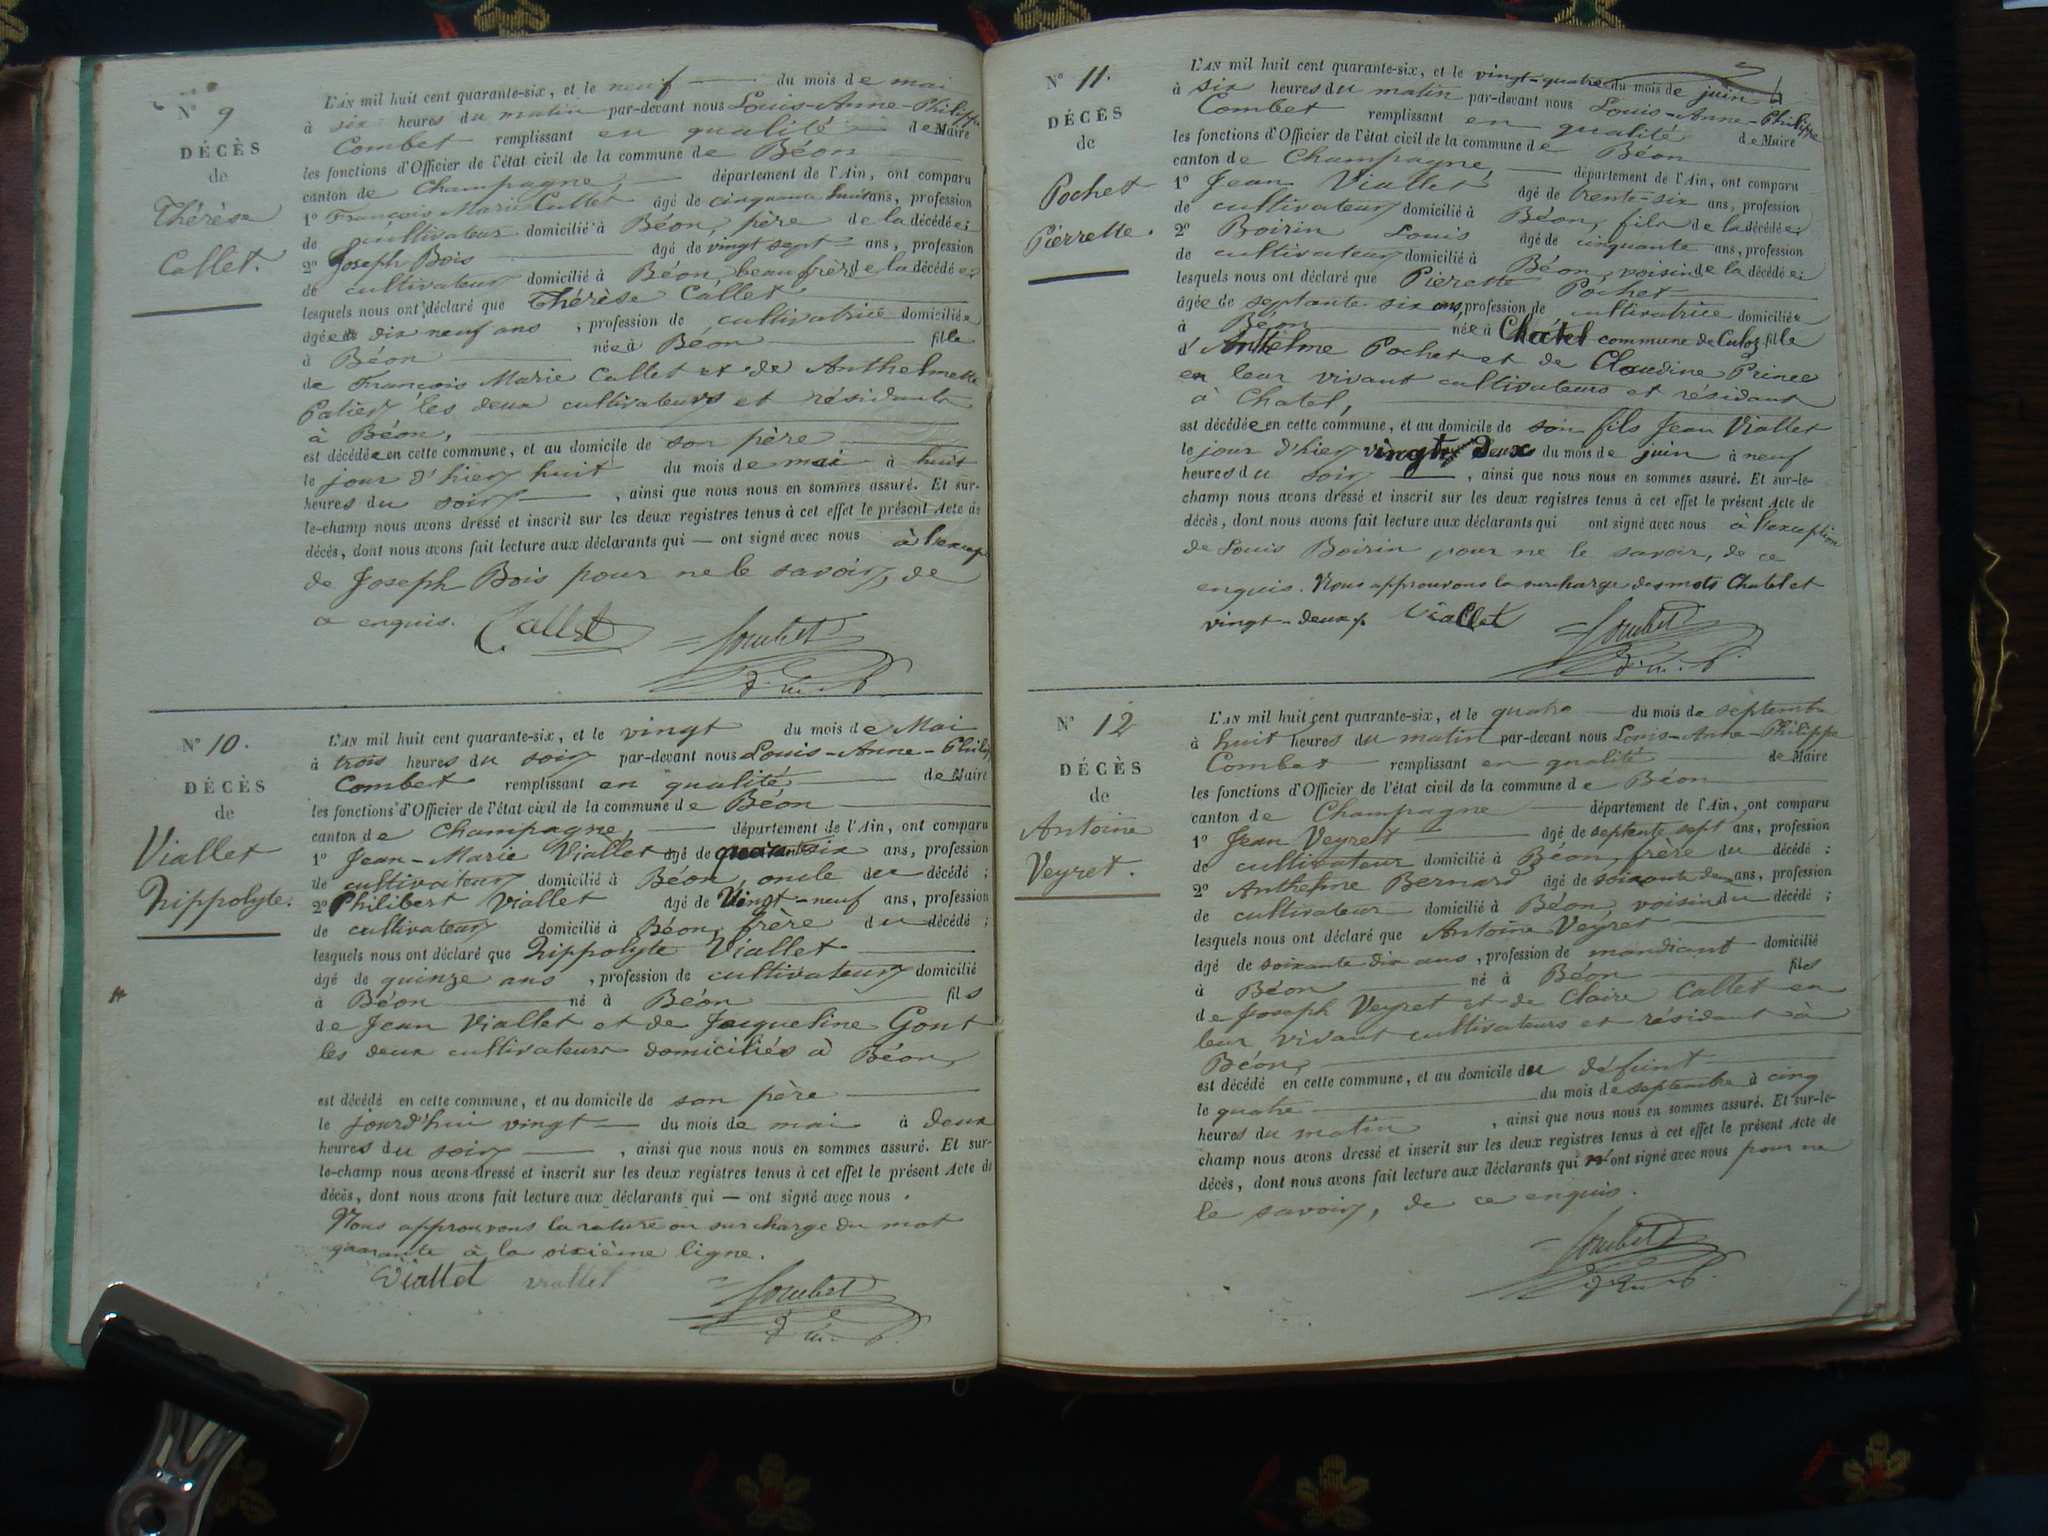 N° 9
DÉCÈS
de
Thérèse
Callet.
L'AN mil huit cent quarante-six, et le neuf du mois de mai
à six heures du matin par-devant nous Louis-Anne-Philippe
Combet remplissant en qualité de Maire
les fonctions d'Officier de l'état civil de la commune de Béon
canton de Champagne, département de l'Ain, ont comparu
1° François Marie Callet âgé de cinquante huit ans, profession
de cultivateur domicilié à Béon, père de la décédée;
2° Joseph Bois âgé de vingt sept ans, profession
de cultivateur domicilié à Béon, beau frère de la décédée;
lesquels nous ont déclaré que Thérèse Callet
âgée de dix neuf ans, profession de cultivatrice domiciliée
à Béon née à Béon fille
de François Marie Callet et de Anthelmette
Patier les deux cultivateurs et résidants
à Béon,
est décédée en cette commune, et au domicile de son père
le jour d'hier huit du mois de mai à huit
heures du soir, ainsi que nous nous en sommes assuré. Et sur-
le-champ nous avons dressé et inscrit sur les deux registres tenus à cet effet le présent Acte de
décès, dont nous avons fait lecture aux déclarants qui — ont signé avec nous à l'excep
de Joseph Bois pour ne le savoir, de
ce enquis. Callet Combet
N° 10.
DÉCÈS
de
Viallet
hippolyte.
L'AN mil huit cent quarante-six, et le vingt du mois de Mai
à trois heures du soir par-devant nous Louis-Anne-Philippe
Combet remplissant en qualité de Maire
les fonctions d'Officier de l'état civil de la commune de Béon
canton de Champagne, département de l'Ain, ont comparu
1° Jean-Marie Viallet âgé de quarante six ans, profession
de cultivateur domicilié à Béon, oncle du décédé;
2° Philibert Viallet âgé de Vingt-neuf ans, profession
de cultivateur domicilié à Béon, frère du décédé;
lesquels nous ont déclaré que hippolyte Viallet
âgé de quinze ans, profession de cultivateur domicilié
à Béon né à Béon fils
de Jean Viallet et de Jacqueline Gont
les deux cultivateurs domiciliés à Béon,
est décédé en cette commune, et au domicile de son père
le jourd'hui vingt du mois de mai à deux
heures du soir, ainsi que nous nous en sommes assuré. Et sur-
le-champ nous avons dressé et inscrit sur les deux registres tenus à cet effet le présent Acte de
décès, dont nous avons fait lecture aux déclarants qui — ont signé avec nous.
Nous approuvons la rature ou surcharge du mot
quarante à la sixième ligne.
Viallet viallet Combet
N° 11.
DÉCÈS
de
Pochet
Pierrette.
L'AN mil huit cent quarante-six, et le vingt-quatre du mois de juin
à six heures du matin par-devant nous Louis-Anne-Philippe
Combet remplissant en qualité de Maire
les fonctions d'Officier de l'état civil de la commune de Béon
canton de Champagne, département de l'Ain, ont comparu
1° Jean Viallet âgé de trente-six ans, profession
de cultivateur domicilié à Béon, fils de la décédée;
2° Boirin Louis âgé de cinquante ans, profession
de cultivateur domicilié à Béon, voisin de la décédée;
lesquels nous ont déclaré que Pierette Pochet
âgée de septante six ans, profession de cultivatrice domiciliée
à Béon née à Chatel commune de Culoz fille
d'Anthelme Pochet et de Claudine Prince
en leur vivant cultivateurs et résidant
à Chatel,
est décédée en cette commune, et au domicile de son fils Jean Viallet
le jour d'hier vingt deux du mois de juin à neuf
heures du soir, ainsi que nous nous en sommes assuré. Et sur-le-
champ nous avons dressé et inscrit sur les deux registres tenus à cet effet le présent Acte de
décès, dont nous avons fait lecture aux déclarants qui ont signé avec nous à l'exception
de Louis Boirin pour ne le savoir, de ce
enquis. Nous approuvons la surcharge des mots Chatel et
vingt-deux. Viallet Combet
N° 12
DÉCÈS
de
Antoine
Veyret.
L'AN mil huit cent quarante-six, et le quatre du mois de septembre
à huit heures du matin par-devant nous Louis-Anne-Philippe
Combet remplissant en qualité de Maire
les fonctions d'Officier de l'état civil de la commune de Béon
canton de Champagne département de l'Ain, ont comparu
1° Jean Veyret âgé de septante sept ans, profession
de cultivateur domicilié à Béon, frère du décédé;
2° Anthelme Bernard âgé de soixante deux ans, profession
de cultivateur domicilié à Béon, voisin du décédé;
lesquels nous ont déclaré que Antoine Veyret
âgé de soixante dix ans, profession de mandiant domicilié
à Béon né à Béon fils
de Joseph Veyret et de Claire Callet en
leur vivant cultivateurs et résidant à
Béon,
est décédé en cette commune, et au domicile du défunt
le quatre du mois de septembre à cinq
heures du matin, ainsi que nous nous en sommes assuré. Et sur-le-
champ nous avons dressé et inscrit sur les deux registres tenus à cet effet le présent Acte de
décès, dont nous avons fait lecture aux déclarants qui n'ont signé avec nous pour ne
le savoir, de ce enquis.
Combet